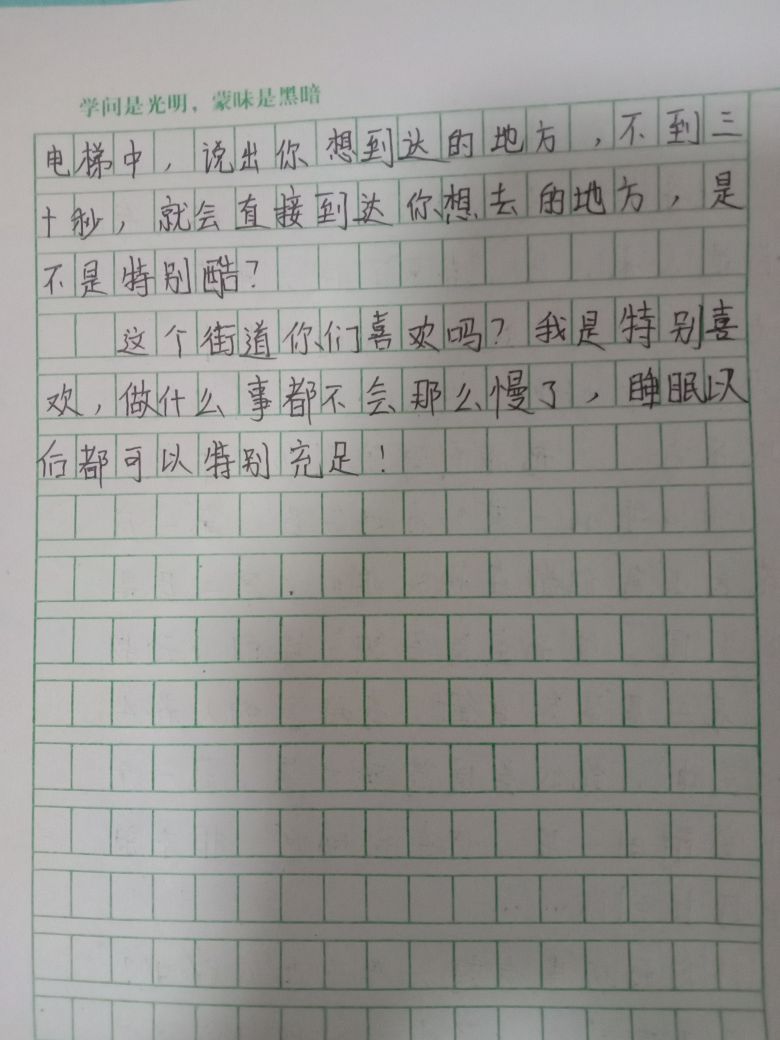 学问是光明，蒙昧是黑暗
电梯中，说出你想到达的地方，不到三
十秒，就会直接到达你想去的地方，是
不是特别酷？
这个街道你们喜欢吗？我是特别喜
欢，做什么事都不会那么慢了，睡眠以
后都可以特别充足！